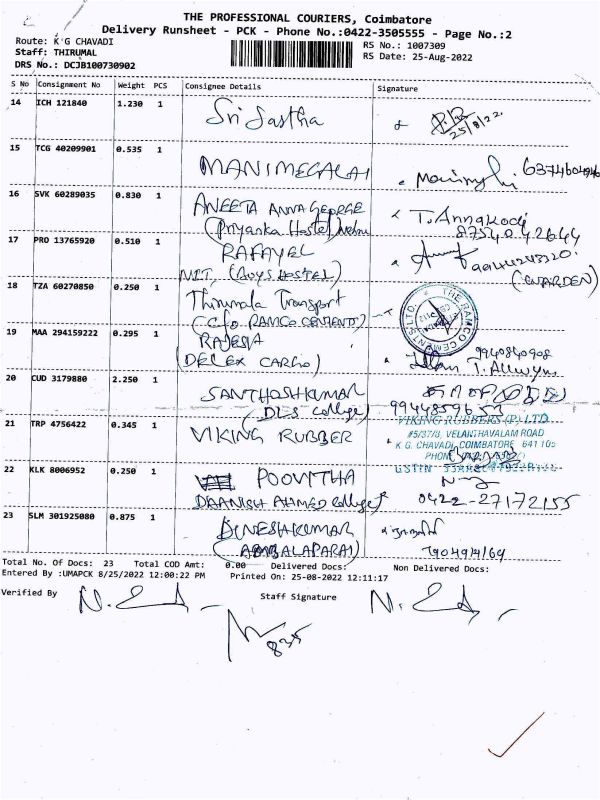 THE PROFESSIONAL COURIERS, Coimbatore
Delivery Runsheet - PCK - Phone No.:0422-3505555 - Page No.:2
Route: K G CHAVADI
Staff: THIRUMAL
DRS No.: DCJB100730902
RS No.: 1007309
RS Date: 25-Aug-2022
S No Consignment No Weight PCS Consignee Details Signature
14 ICH 121840 1.230 1 Sri Sastha
25/8/22
15 TCG 40209901 0.535 1 MANIMEGALAI
16 SVK 60289035 0.830 1 ANEETA ANNA GEORGE
(Priyanka Hostel) Nehru
17 PRO 13765920 0.510 1 RAFAYEL
NIT, (Boys HOSTEL) (WARDEN)
18 TZA 60270850 0.250 1 Thirumala Transport
(C/O RAMCO CEMENTS)
THE RAMCO CEMENTS LTD.
19 MAA 294159222 0.295 1 RAJESH
(DELEX CARGO) 9940840908
20 CUD 3179880 2.250 1 SANTHOSHKUMAR
(DLS College)
21 TRP 4756422 0.345 1 VIKING RUBBER
VIKING RUBBERS (P) LTD
#5/37/8, VELANTHAVALAM ROAD
K.G. CHAVADI, COIMBATORE 641 105
PHONE
GSTIN
22 KLK 8006952 0.250 1 POOVITHA
DAANISH AHMED College 0422-27172155
23 SLM 301925080 0.875 1 DINESHKUMAR
(AMBALAPARAI)
Total No. Of Docs: 23 Total COD Amt: 0.00 Delivered Docs: Non Delivered Docs:
Entered By :UMAPCK 8/25/2022 12:00:22 PM Printed On: 25-08-2022 12:11:17
Verified By Staff Signature
835